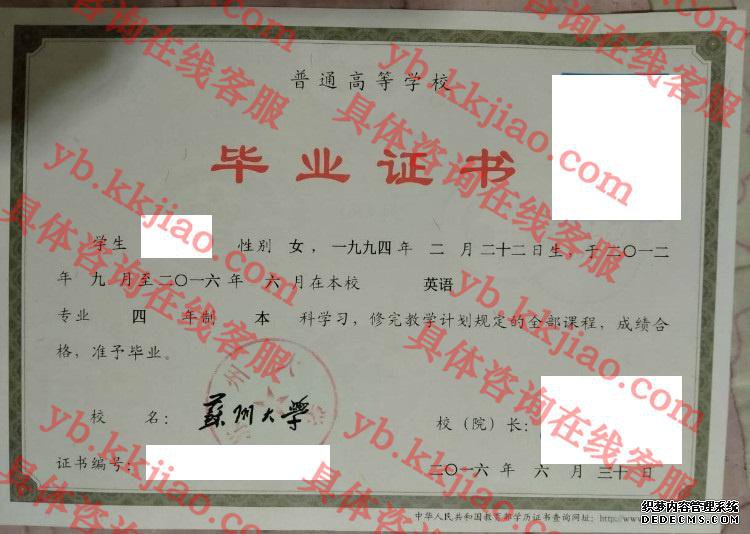 普通高等学校
毕业证书
学生 性别 女，一九九四年 二 月二十二日生，于二〇一二
年 九 月至二〇一六年 六 月在本校 英语
专业 四 年制 本 科学习，修完教学计划规定的全部课程，成绩合
格，准予毕业。
校 名： 蘇州大學
校（院）长：
证书编号：
二〇一六 年 六 月 三十 日
中华人民共和国教育部学历证书查询网址：http://www.
具体咨询在线客服
yb.kkjiao.com
织梦内容管理系统
DEDECMS.COM